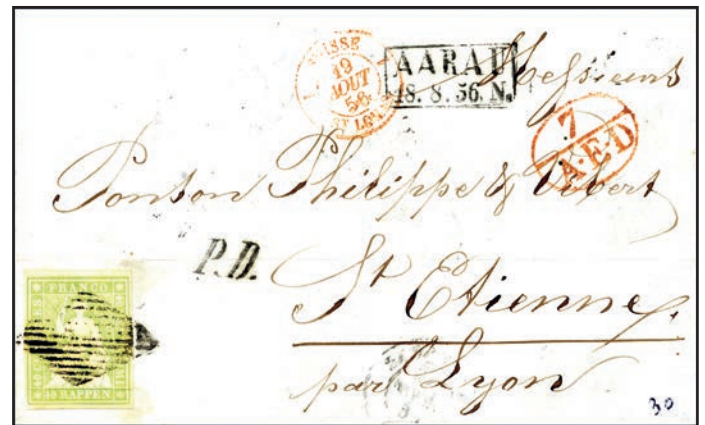 SUISSE
19
AOUT
56
ST LOUIS
AARAU
18. 8. 56. N.
Messieurs
7
A·E·D
Ponson Philippe & Vibert
P.D.
St Etienne
par Lyon
FRANCO
40 RAPPEN
30